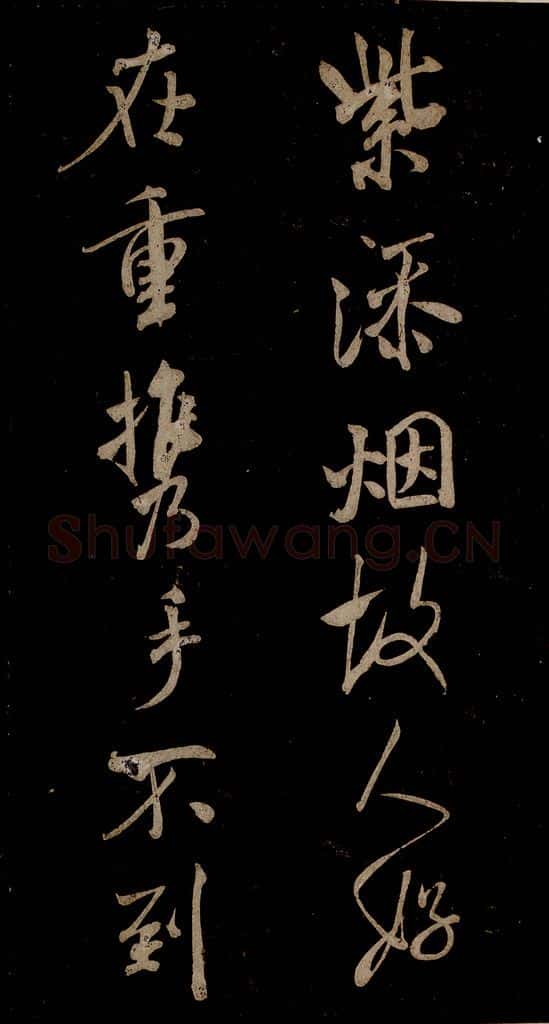 紫深烟故人好
在重携手不到
Shufawang.CN